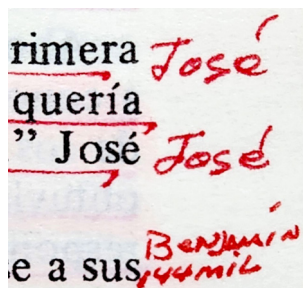 rimera José
quería
.” José José
Benjamín
e a sus 144mil